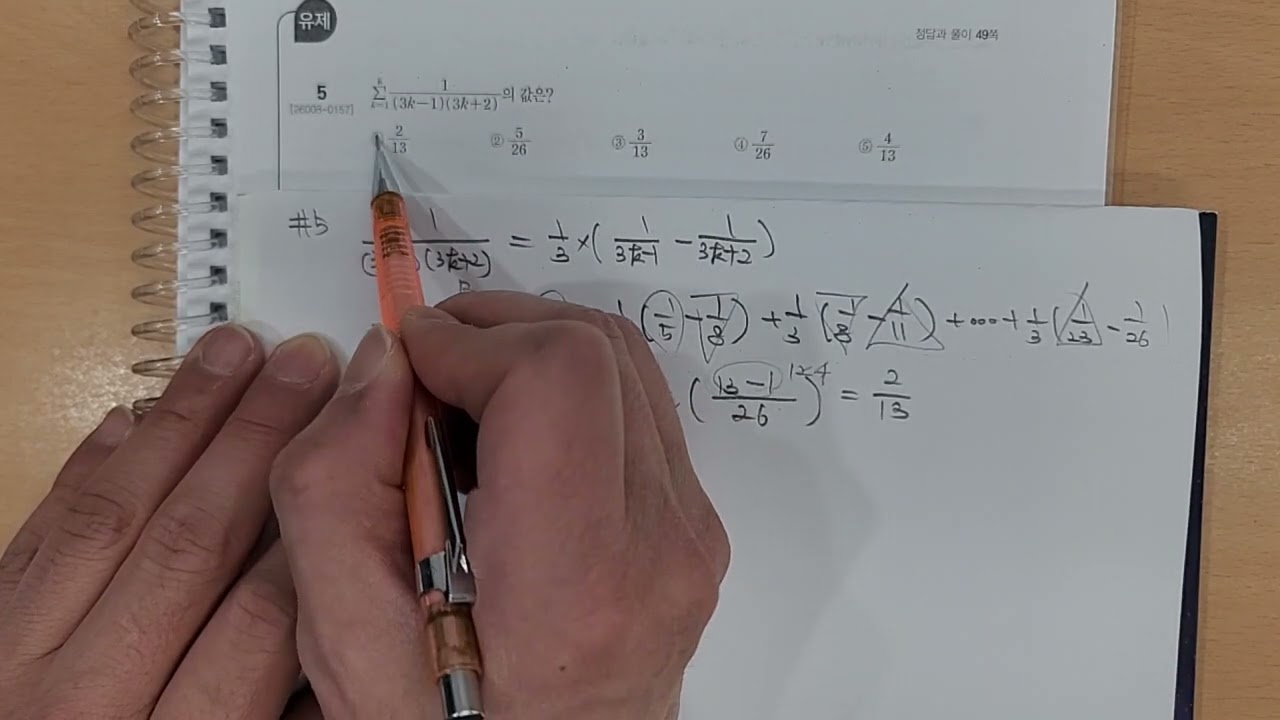 유제
정답과 풀이 49쪽
5 \sum_{k=1}^{8} \frac{1}{(3k-1)(3k+2)}의 값은?
[26008-0157]
\frac{2}{13} ② \frac{5}{26} ③ \frac{3}{13} ④ \frac{7}{26} ⑤ \frac{4}{13}
#5 \frac{1}{(3 (3k+2)} = \frac{1}{3} × ( \frac{1}{3k-1} - \frac{1}{3k+2} )
( \frac{1}{5} - \frac{1}{8} ) + \frac{1}{3} ( \frac{1}{8} - \frac{1}{11} ) + ⋯ + \frac{1}{3} ( \frac{1}{23} - \frac{1}{26} )
( \frac{13-1}{26} ) 12 4 = \frac{2}{13}